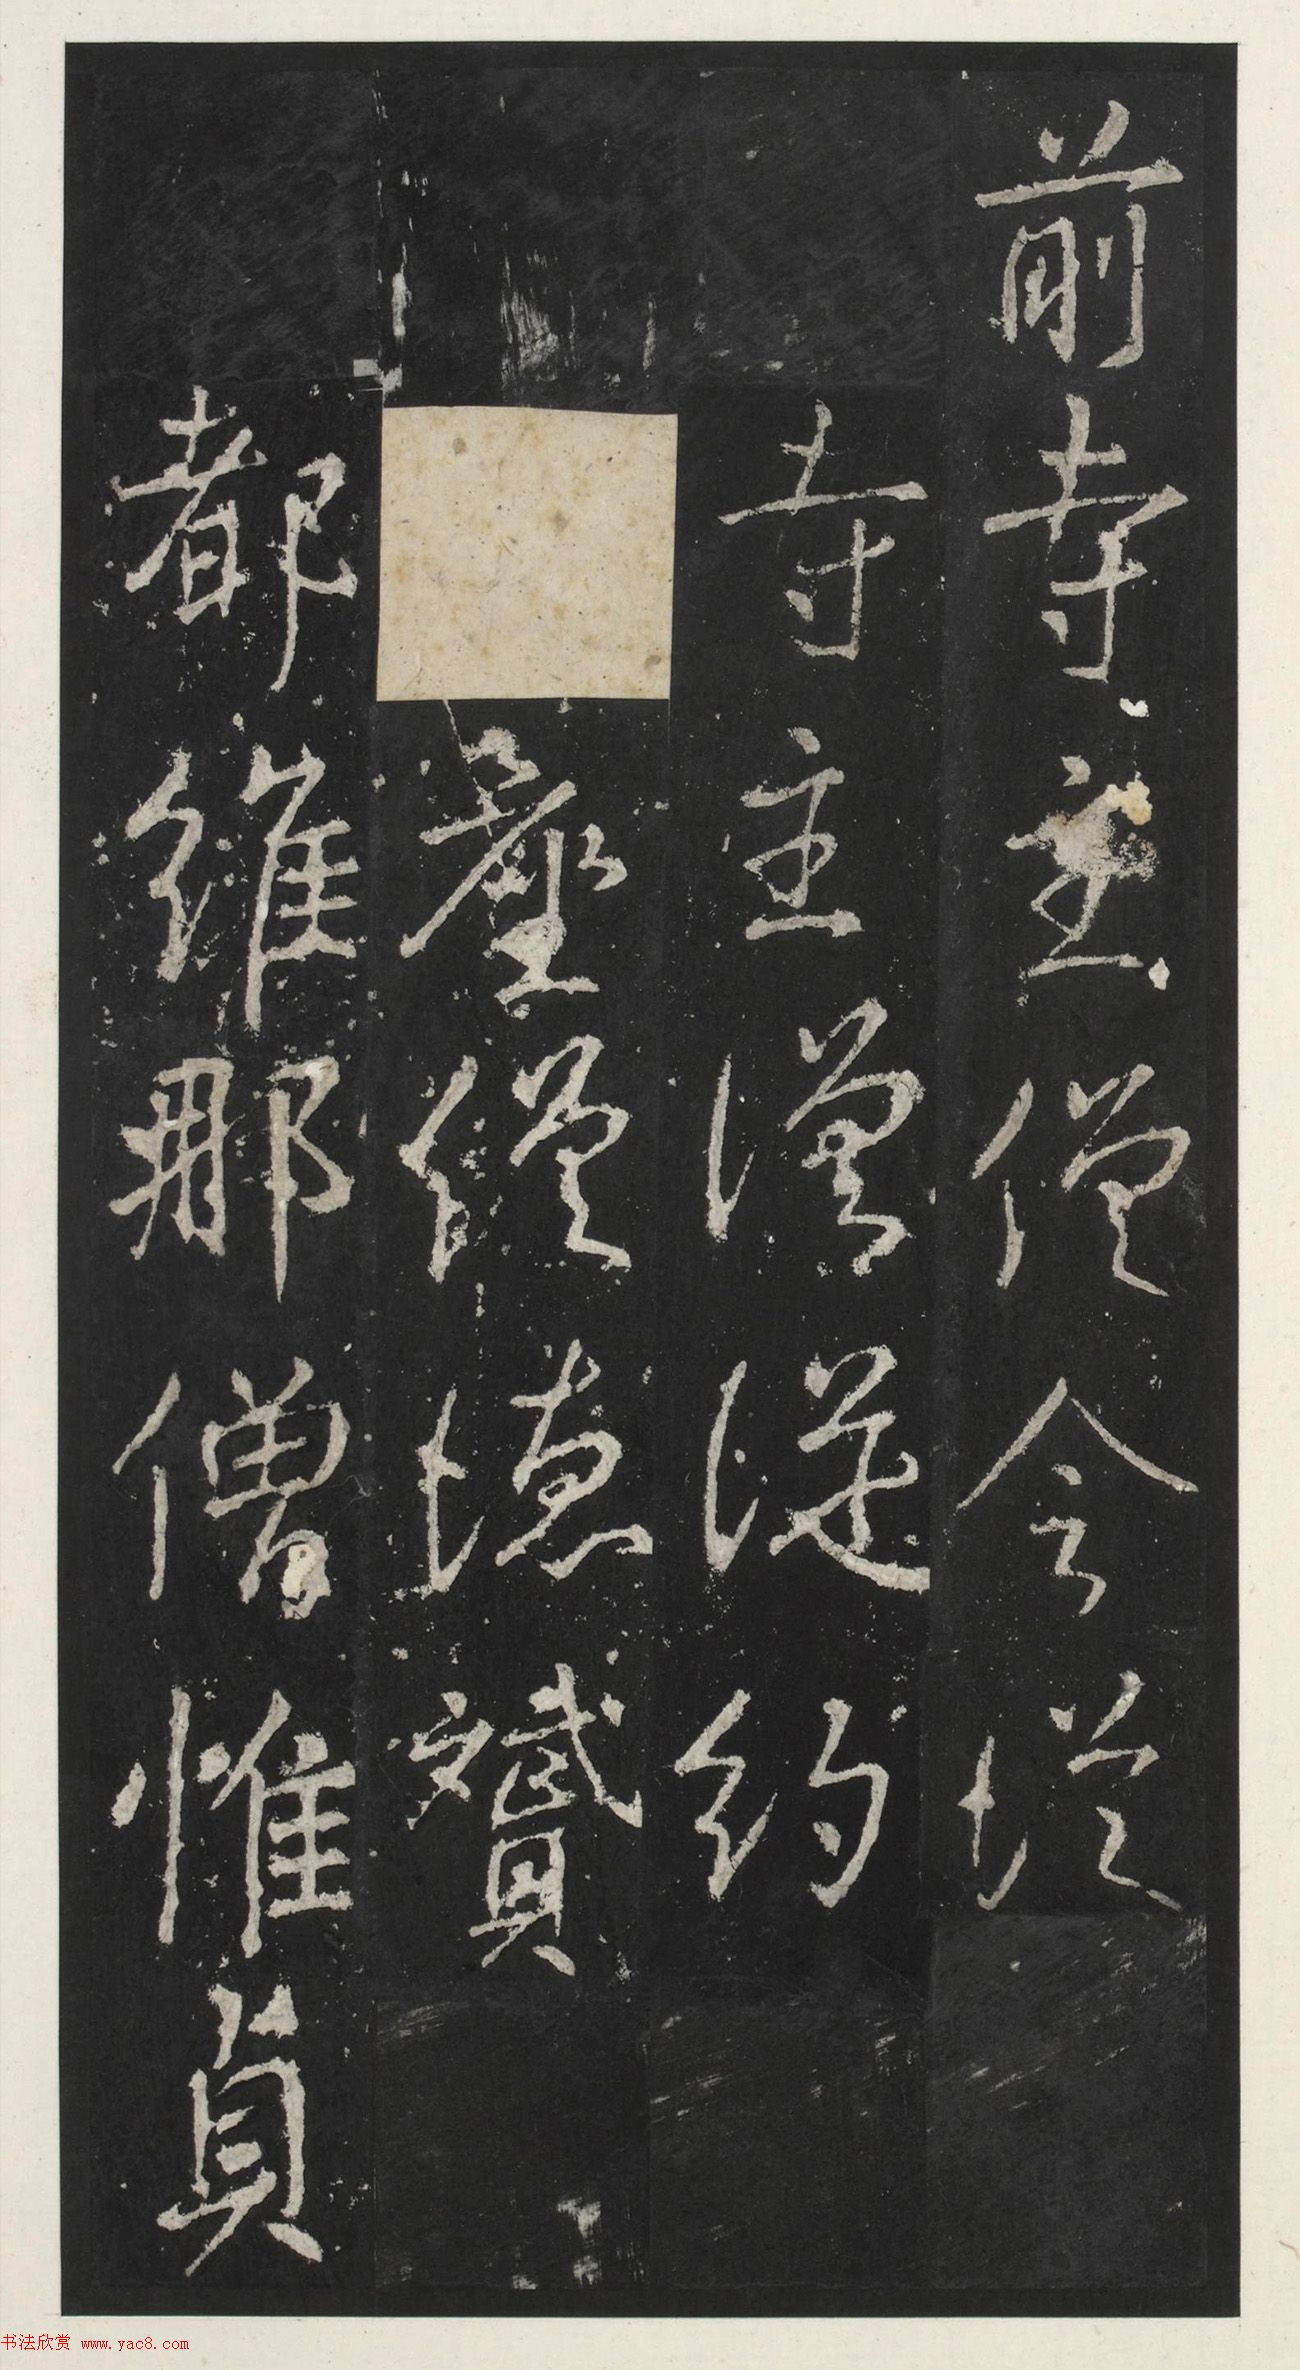 前寺主僧令
寺主僧從約
座僧德贇
都維那僧惟貞
书法欣赏 www.yac8.com